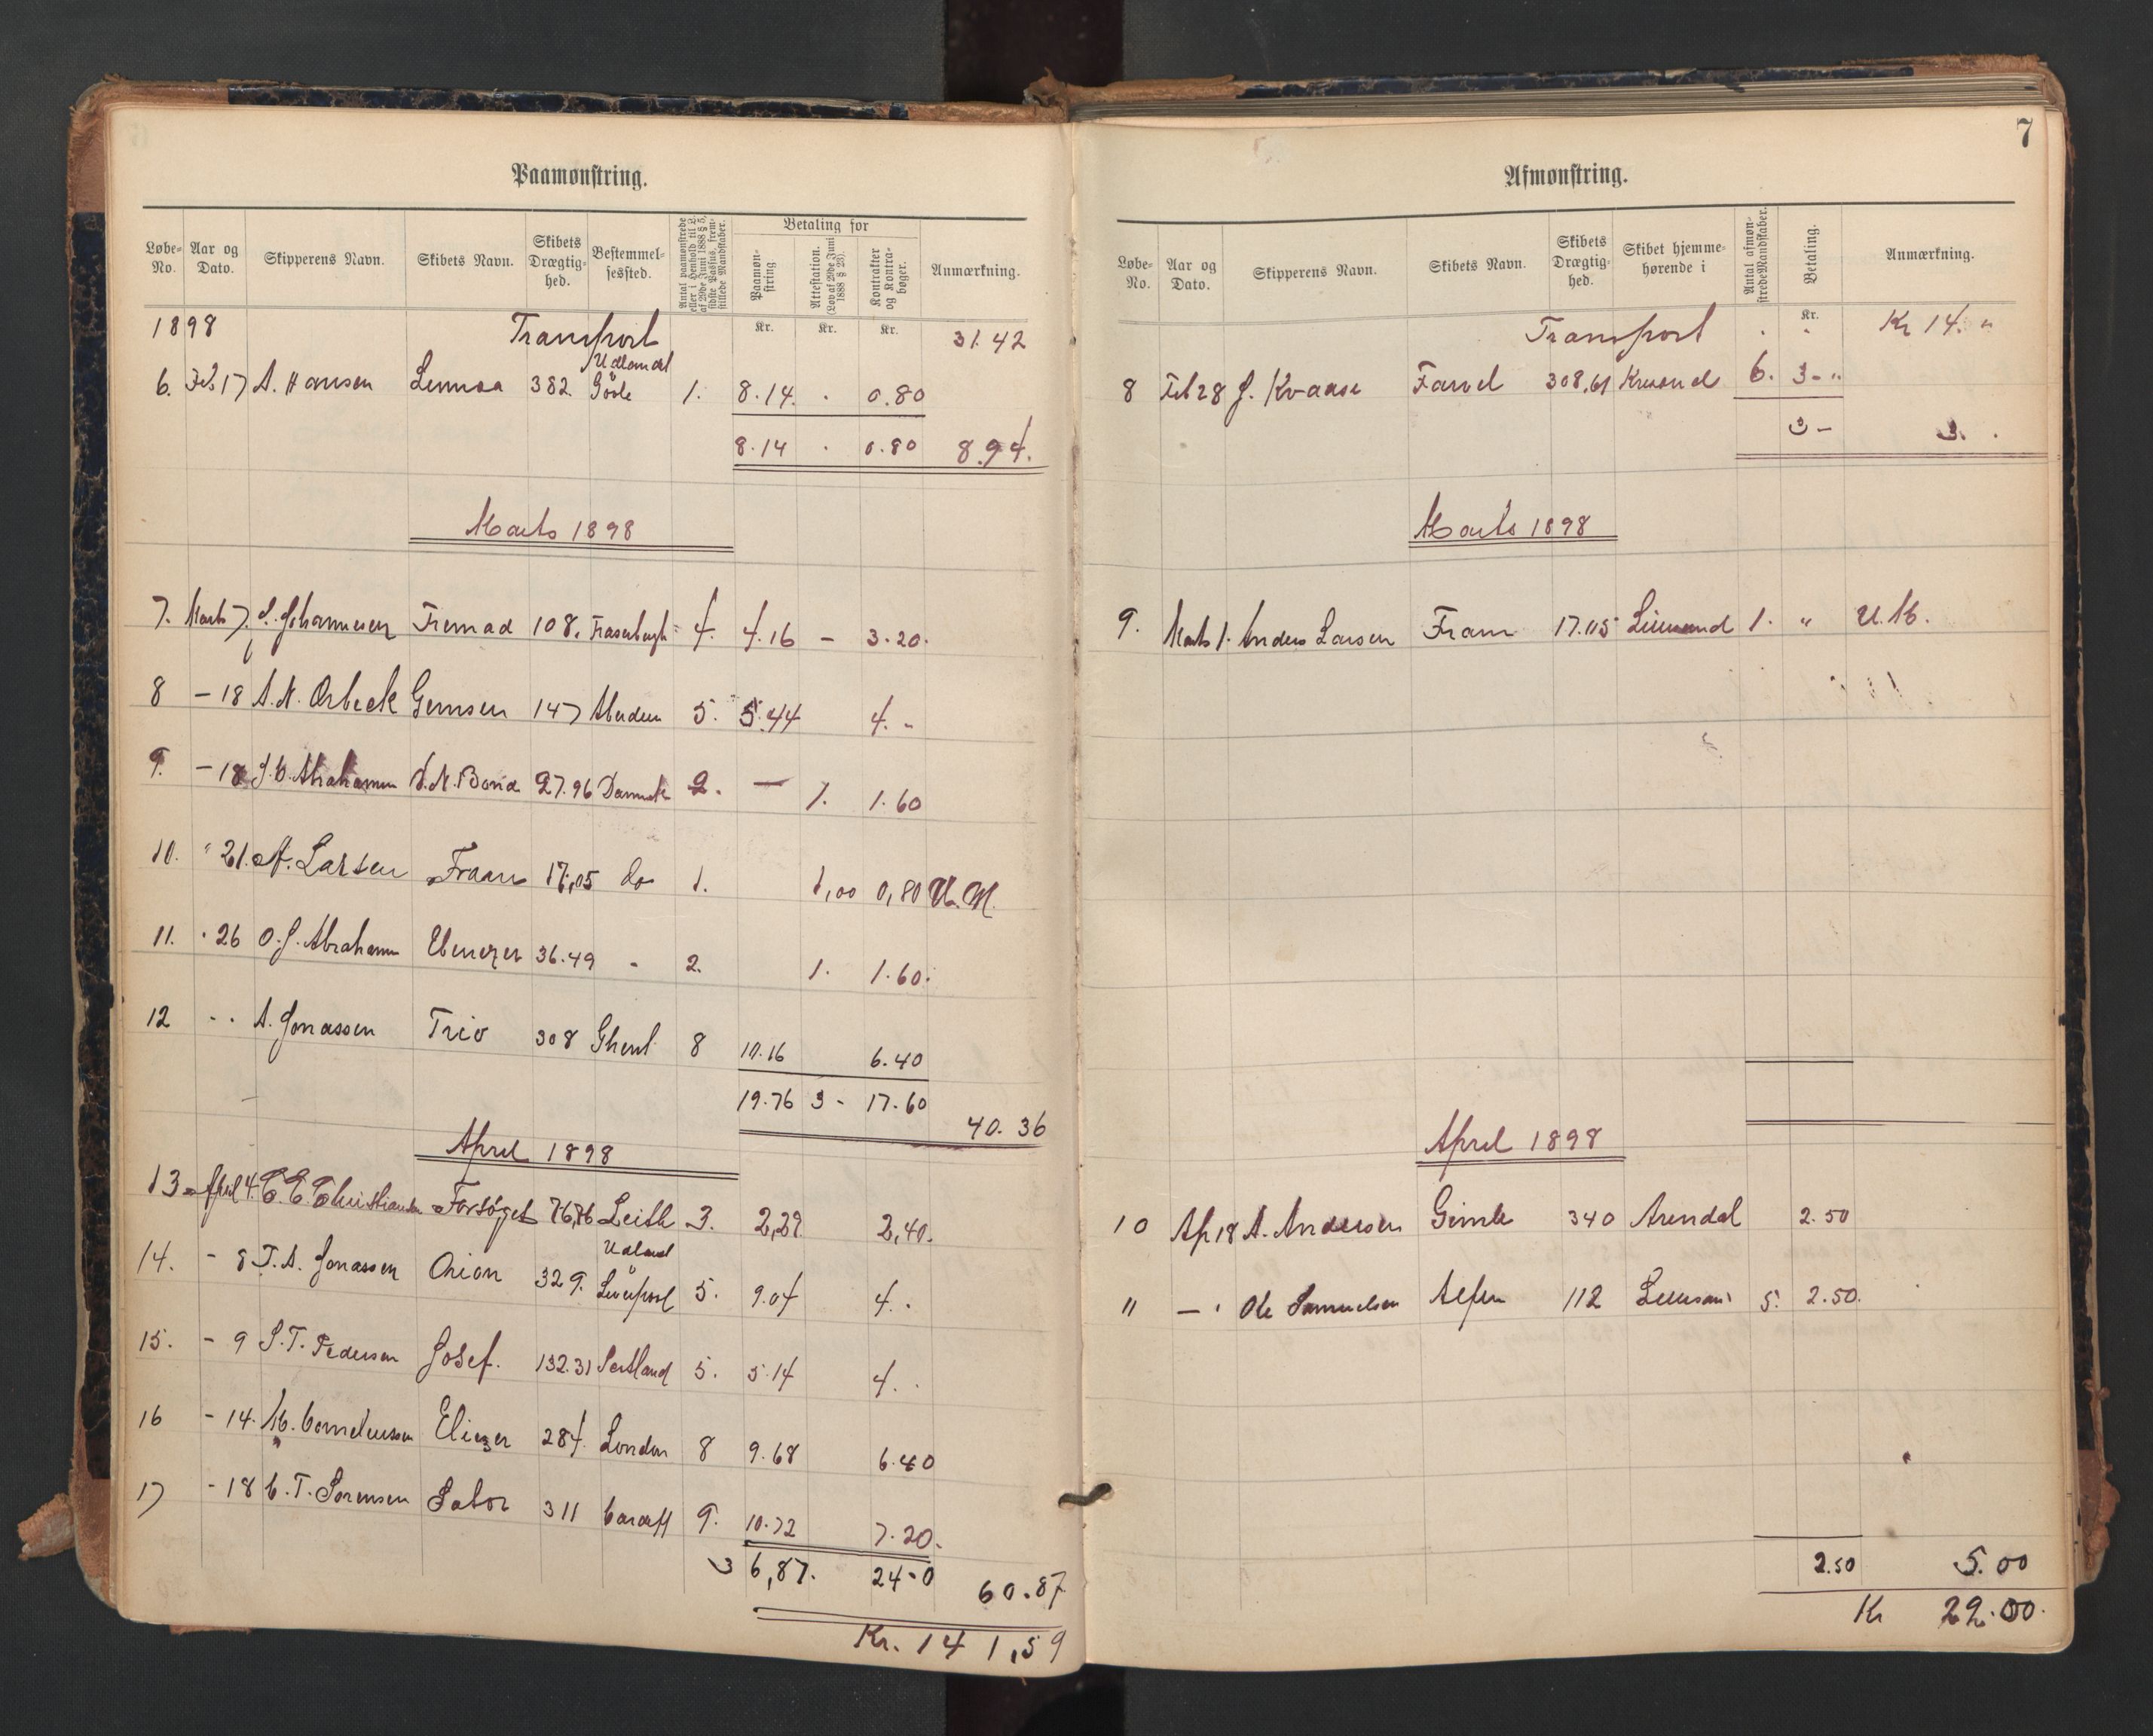 Paamønstring.
Løbe-No. Aar og Dato. Skipperens Navn. Skibets Navn. Skibets Drægtighed. Bestemmelsessted. Antal paamønstrede eller i Henhold til L. af 29de Juni 1888 § 5, sidste Passus, fremstillede Mandskaber. Betaling for Paamønstring Attestation. (Lov af 29de Juni 1888 § 23). Kontrakter og Kontrabøger. Anmærkning.
Kr. Kr. Kr.
1898 Transport 31.42
Udlandet
6. Feb 17 A. Hansen Lennea 382. Gööle 1. 8.14. . 0.80
8.14 . 0.80 8.94.
Marts 1898
7. Marts 7 Johannesen Fremad 108. Fraserburgh 4. 4.16 - 3.20.
8 - 18 A. N. Orbeck Gemsen 147 Aberdeen 5. 5.44 4. -
9. - 18 Abrahamsen 27.96 Danmark 2. - 1. 1.60
10. " 21. A. Larsen Fram 17,05 do 1. 1,00 0,80 U. M.
11. . 26 O. J. Abrahamsen Ebenezer 36.49 - 2. 1. 1.60.
12 - . A. Jonassen Trio 308 Ghent 8 10.16 6.40
19.76 3 - 17.60
40.36
April 1898
13 April 4. C. E. Christiansen Forsøget 76,76 Leith 3. 2,29. 2,40.
Udland
14. - 8 T. A. Jonassen Orion 329. Liverpool 5. 9.04 4. .
15. - 9 S. T. Pedersen Josef. 132.31 5. 5.14 4. .
16 - 14. M. Corneliussen Eliezer 284. London 8 9.68 6.40
17 - 18 C. T. Sørensen Labor 311 Cardiff 9. 10.72 7.20.
36,87. 24-0 60.87
Kr. 141,59
7
Afmønstring.
Løbe-No. Aar og Dato. Skipperens Navn. Skibets Navn. Skibets Drægtighed. Skibet hjemmehørende i Antal afmønstrede Mandskaber. Betaling. Anmærkning.
Kr.
Transport . " Kr 14. "
8 Feb 28 J. Kvaase Farvel 308,61 Krsand 6. 3 - "
3 - 3. .
Marts 1898
9. Marts 1. Anders Larsen Fram 17.05 Lillesand 1. " U. M.
April 1898
10 Ap 18 A. Andersen Gimle 340 Arendal 2.50
11 - ' Ole Samuelsen Alfen 112 Lillesand 5. 2.50.
2.50 5.00
Kr 22.00.